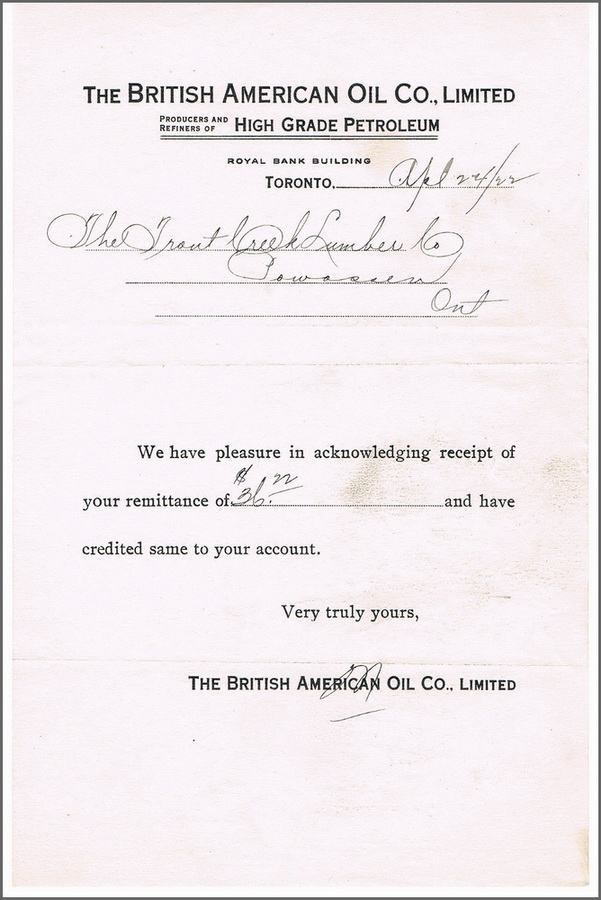 THE BRITISH AMERICAN OIL CO., LIMITED
PRODUCERS AND REFINERS OF HIGH GRADE PETROLEUM
ROYAL BANK BUILDING
TORONTO, Apl 24/22
The Trout Creek Lumber Co
Powassen
Ont
We have pleasure in acknowledging receipt of
your remittance of $36.22 and have
credited same to your account.
Very truly yours,
THE BRITISH AMERICAN OIL CO., LIMITED